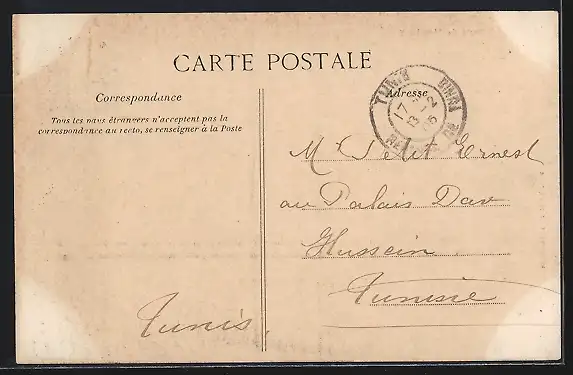 CARTE POSTALE
Correspondance
Tous les pays étrangers n'acceptent pas la
correspondance au recto, se renseigner à la Poste
Adresse
TUNIS
17
13 12
05
Mr Petit Ernest
au Palais Dar
Hussein
Tunisie
Tunis.